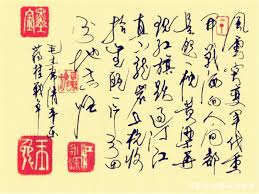 風雲突變軍閥重
開战洒向人间都
是怨一枕黄粱再
現红旗躍过汀江
直下龙岩上杭收
拾金瓯一片分田
分地真忙
毛主席清平乐
蒋桂战争